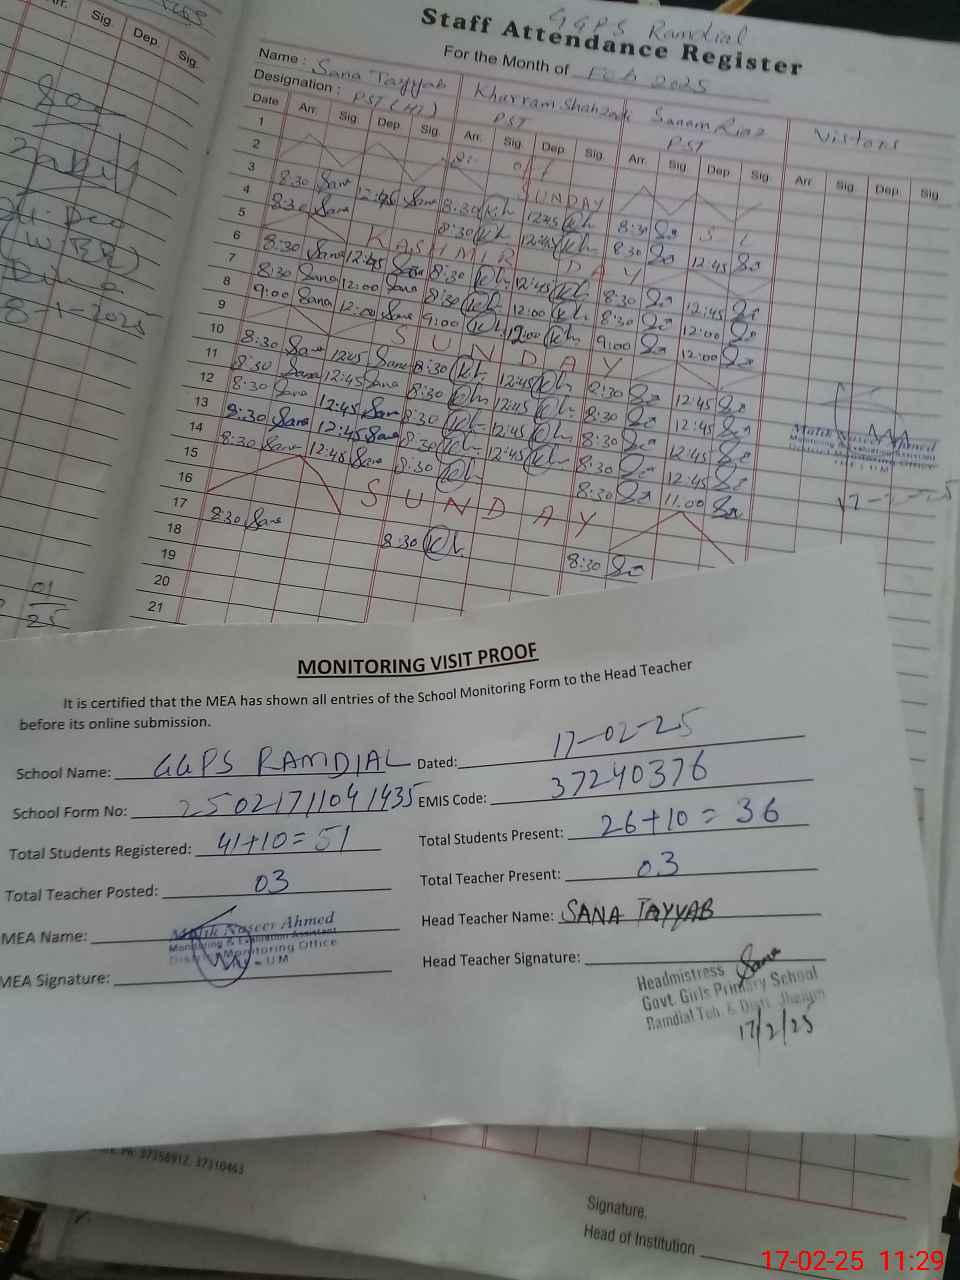 GGPS Ramdial
Staff Attendance Register
For the Month of Feb 2025
Name : Sana Tayyab Khurram Shahzadi Sanam Riaz Vistors
Designation : PST (HT) PST PST
Date Arr. Sig. Dep. Sig. Arr. Sig. Dep. Sig. Arr. Sig. Dep. Sig. Arr. Sig. Dep. Sig.
1
2 SUNDAY
3 8:30 Sana 12:45 Sana 8:30 Kh 12:45 Kh 8:30 Sa S L
4 8:30 Sana 8:30 Kh 12:45 Kh 8:30 Sa 12:45 Sa
5 KASHMIR DAY
6 8:30 Sana 12:45 Sana 8:30 Kh 12:45 Kh 8:30 Sa 12:45 Sa
7 8:30 Sana 12:00 Sana 8:30 Kh 12:00 Kh 8:30 Sa 12:00 Sa
8 9:00 Sana 12:00 Sana 9:00 Kh 12:00 Kh 9:00 Sa 12:00 Sa
9 SUNDAY
10 8:30 Sana 12:45 Sana 8:30 Kh 12:45 Kh 8:30 Sa 12:45 Sa
11 8:30 Sana 12:45 Sana 8:30 Kh 12:45 Kh 8:30 Sa 12:45 Sa
12 8:30 Sana 12:45 Sana 8:30 Kh 12:45 Kh 8:30 Sa 12:45 Sa
13 8:30 Sana 12:45 Sana 8:30 Kh 12:45 Kh 8:30 Sa 12:45 Sa
14 8:30 Sana 12:45 Sana 8:30 Kh 8:30 Sa 11:00 Sa
15
16 SUNDAY
17 8:30 Sana 8:30 Kh 8:30 Sa
18
19
20
21
Malik Naseer Ahmed
Monitoring & Evaluation Assistant
District Monitoring Office
Arr. Sig. Dep. Sig.
8-1-2025
01
25
MONITORING VISIT PROOF
It is certified that the MEA has shown all entries of the School Monitoring Form to the Head Teacher
before its online submission.
School Name: GGPS RAMDIAL Dated: 17-02-25
School Form No: 25021711041435 EMIS Code: 37240376
Total Students Registered: 41+10=51 Total Students Present: 26+10=36
Total Teacher Posted: 03 Total Teacher Present: 03
MEA Name: Malik Naseer Ahmed Head Teacher Name: SANA TAYYAB
Monitoring & Evaluation Assistant
District Monitoring Office
MEA Signature: Head Teacher Signature: Sana
Headmistress
Govt. Girls Primary School
Ramdial Teh. & Distt. Jhelum
17/2/25
Ph: 37358912, 37310463
Signature.
Head of Institution
17-02-25 11:29